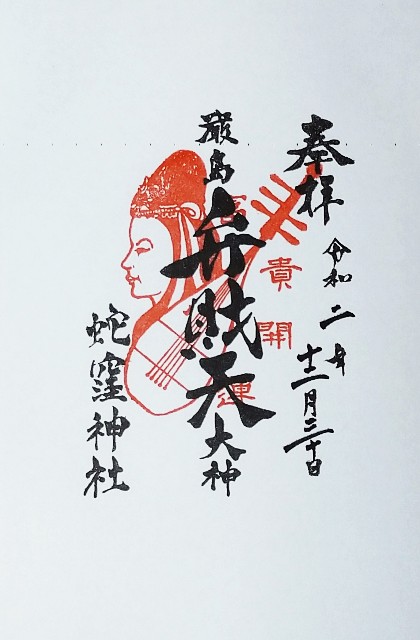 奉拝
令和二年
十二月三十日
厳島
弁財天
大神
貴
開
運
蛇窪神社